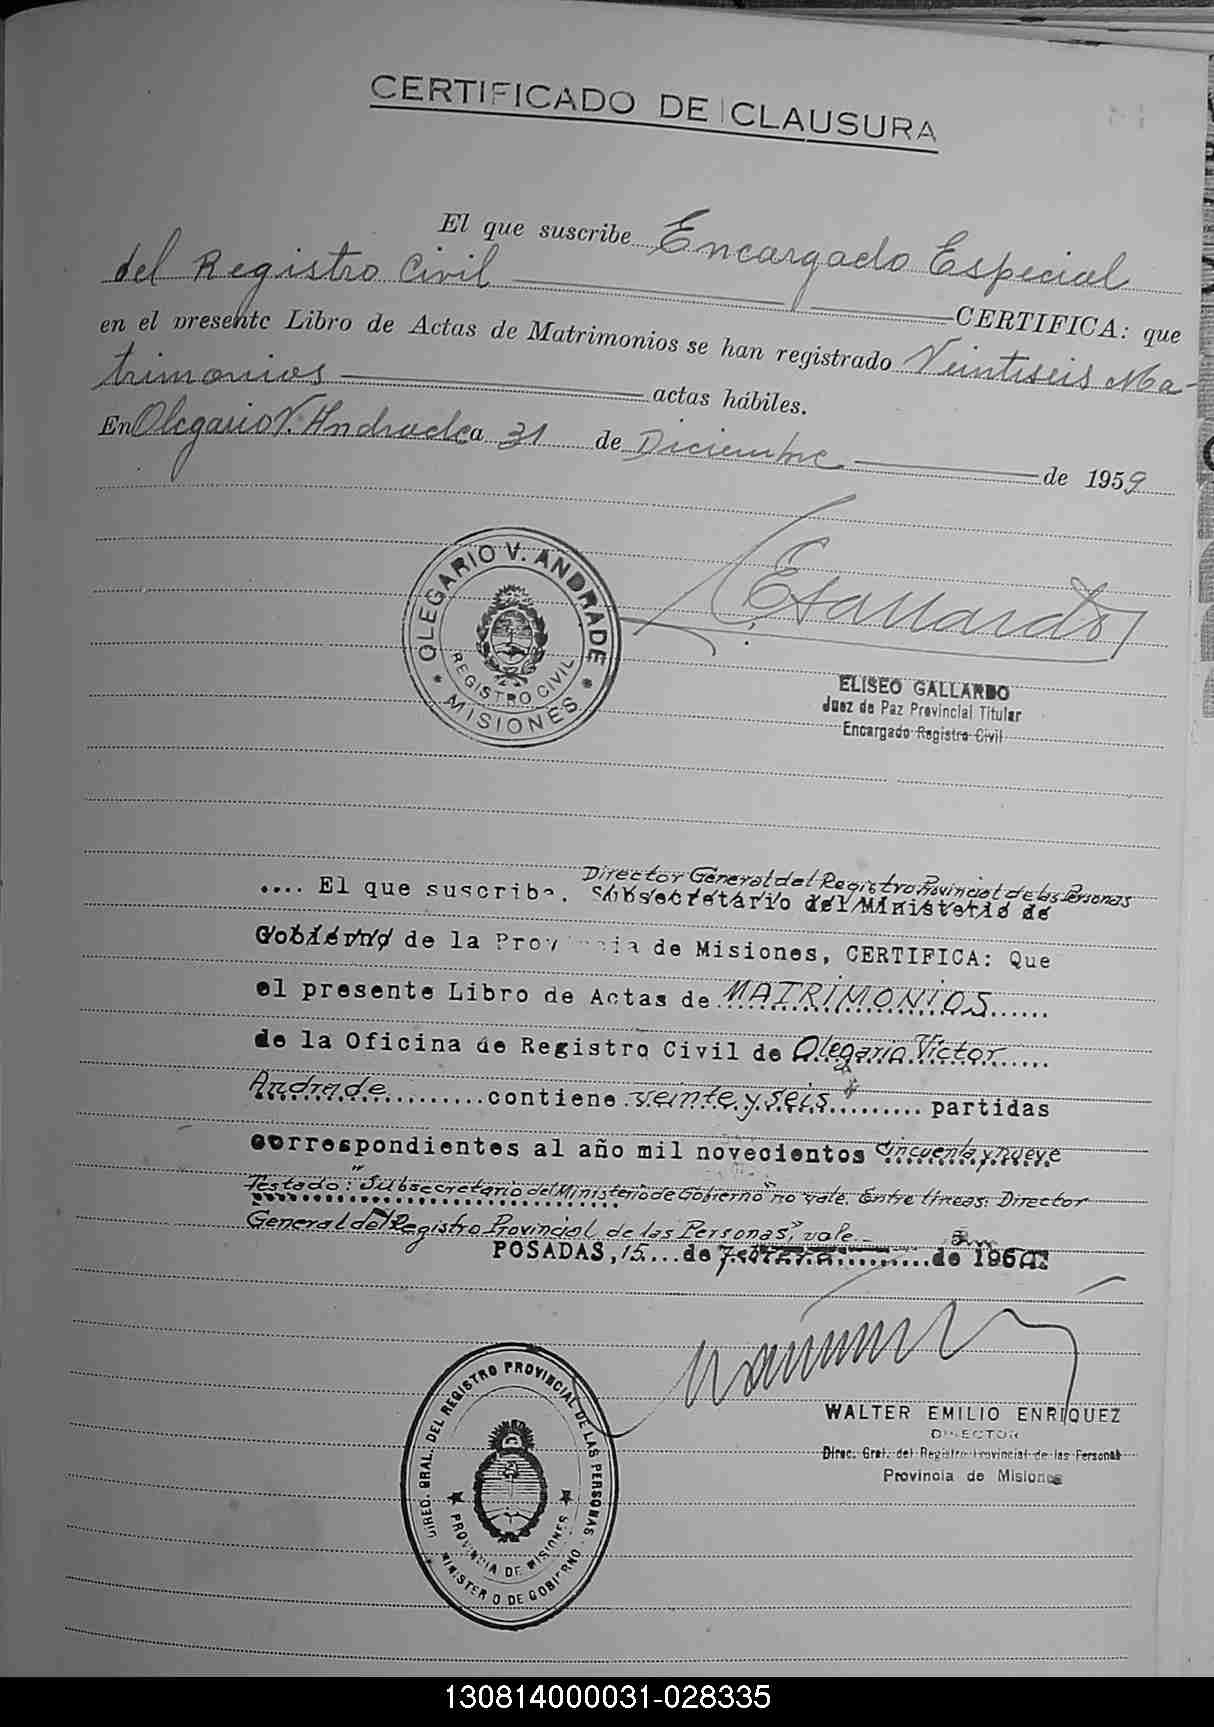 CERTIFICADO DE CLAUSURA
El que suscribe Encargado Especial
del Registro Civil CERTIFICA: que
en el presente Libro de Actas de Matrimonios se han registrado Veintiseis Ma-
trimonios actas hábiles.
En Olegario V. Andrade a 31 de Diciembre de 1959
OLEGARIO V. ANDRADE
REGISTRO CIVIL
* MISIONES *
EGallardo
ELISEO GALLARDO
Juez de Paz Provincial Titular
Encargado Registro Civil
Director General del Registro Provincial de las Personas
.... El que suscribe. Subsecretario del Ministerio de
Gobierno de la Provincia de Misiones, CERTIFICA: Que
el presente Libro de Actas de MATRIMONIOS......
de la Oficina de Registro Civil de Olegario Victor.....
Andrade..........contiene veinte y seis.......... partidas
correspondientes al año mil novecientos cincuenta y nueve
Testado: "Subsecretario del Ministerio de Gobierno" no vale. Entre lineas: Director
General del Registro Provincial de las Personas", vale.-
POSADAS, 15...de de 196
WALTER EMILIO ENRIQUEZ
DIRECTOR
Direc. Gral. del Registro Provincial de las Personas
Provincia de Misiones
DIREC. GRAL. DEL REGISTRO PROVINCIAL DE LAS PERSONAS
PROVINCIA DE MISIONES
MINISTERIO DE GOBIERNO
130814000031-028335